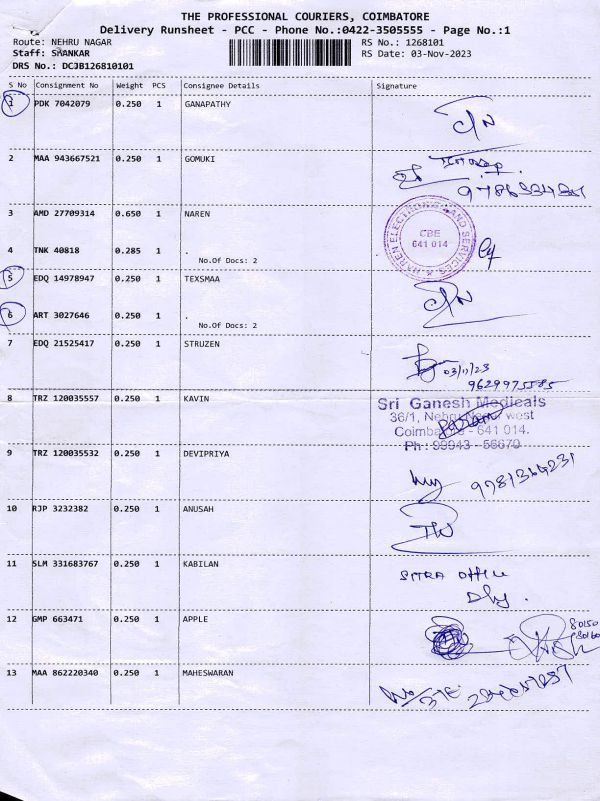 THE PROFESSIONAL COURIERS, COIMBATORE
Delivery Runsheet - PCC - Phone No.:0422-3505555 - Page No.:1
Route: NEHRU NAGAR RS No.: 1268101
Staff: SHANKAR RS Date: 03-Nov-2023
DRS No.: DCJB126810101
S No Consignment No Weight PCS Consignee Details Signature
1 PDK 7042079 0.250 1 GANAPATHY
2 MAA 943667521 0.250 1 GOMUKI
3 AMD 27709314 0.650 1 NAREN
NAREN ELECTRONICS AND SERVICES
CBE
641 014
4 TNK 40818 0.285 1 .
No.Of Docs: 2
5 EDQ 14978947 0.250 1 TEXSMAA
6 ART 3027646 0.250 1 .
No.Of Docs: 2
7 EDQ 21525417 0.250 1 STRUZEN
03/11/23
9629975585
8 TRZ 120035557 0.250 1 KAVIN
Sri Ganesh Medicals
36/1, Nehru Nagar west
Coimbatore - 641 014.
Ph : 99943 - 56670
9 TRZ 120035532 0.250 1 DEVIPRIYA
9781364231
10 RJP 3232382 0.250 1 ANUSAH
11 SLM 331683767 0.250 1 KABILAN
SITRA office
12 GMP 663471 0.250 1 APPLE
80150
80160
13 MAA 862220340 0.250 1 MAHESWARAN